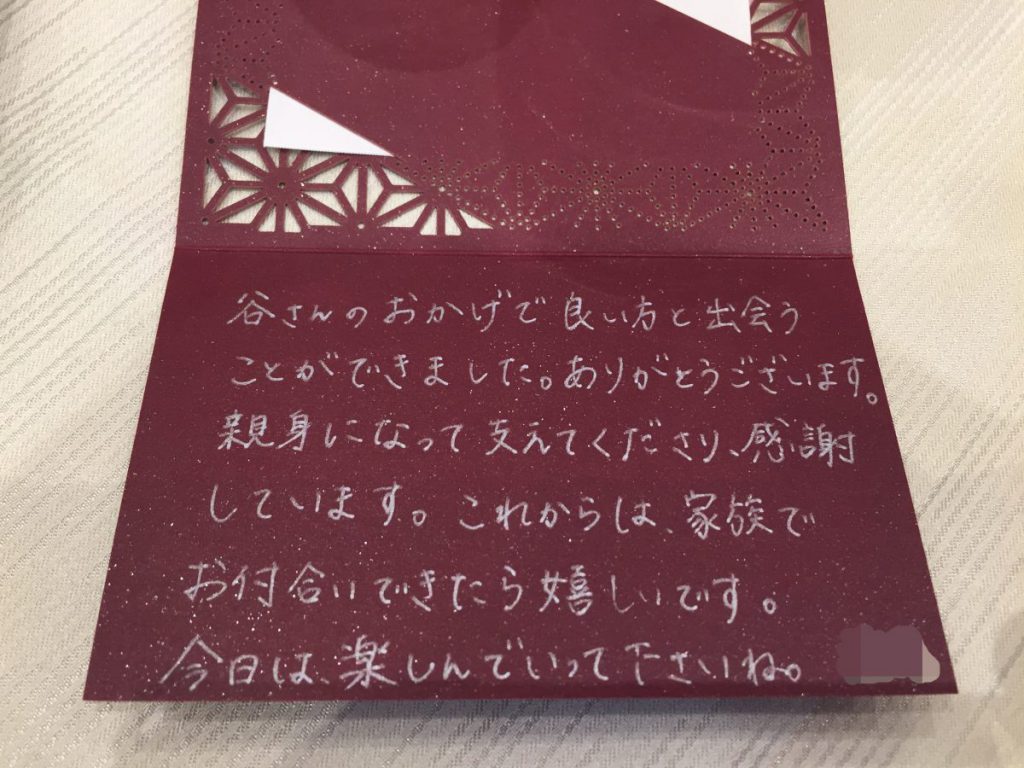 谷さんのおかげで良い方と出会う
ことができました。ありがとうございます。
親身になって支えてくださり、感謝
しています。これからは、家族で
お付合いできたら嬉しいです。
今日は、楽しんでいって下さいね。